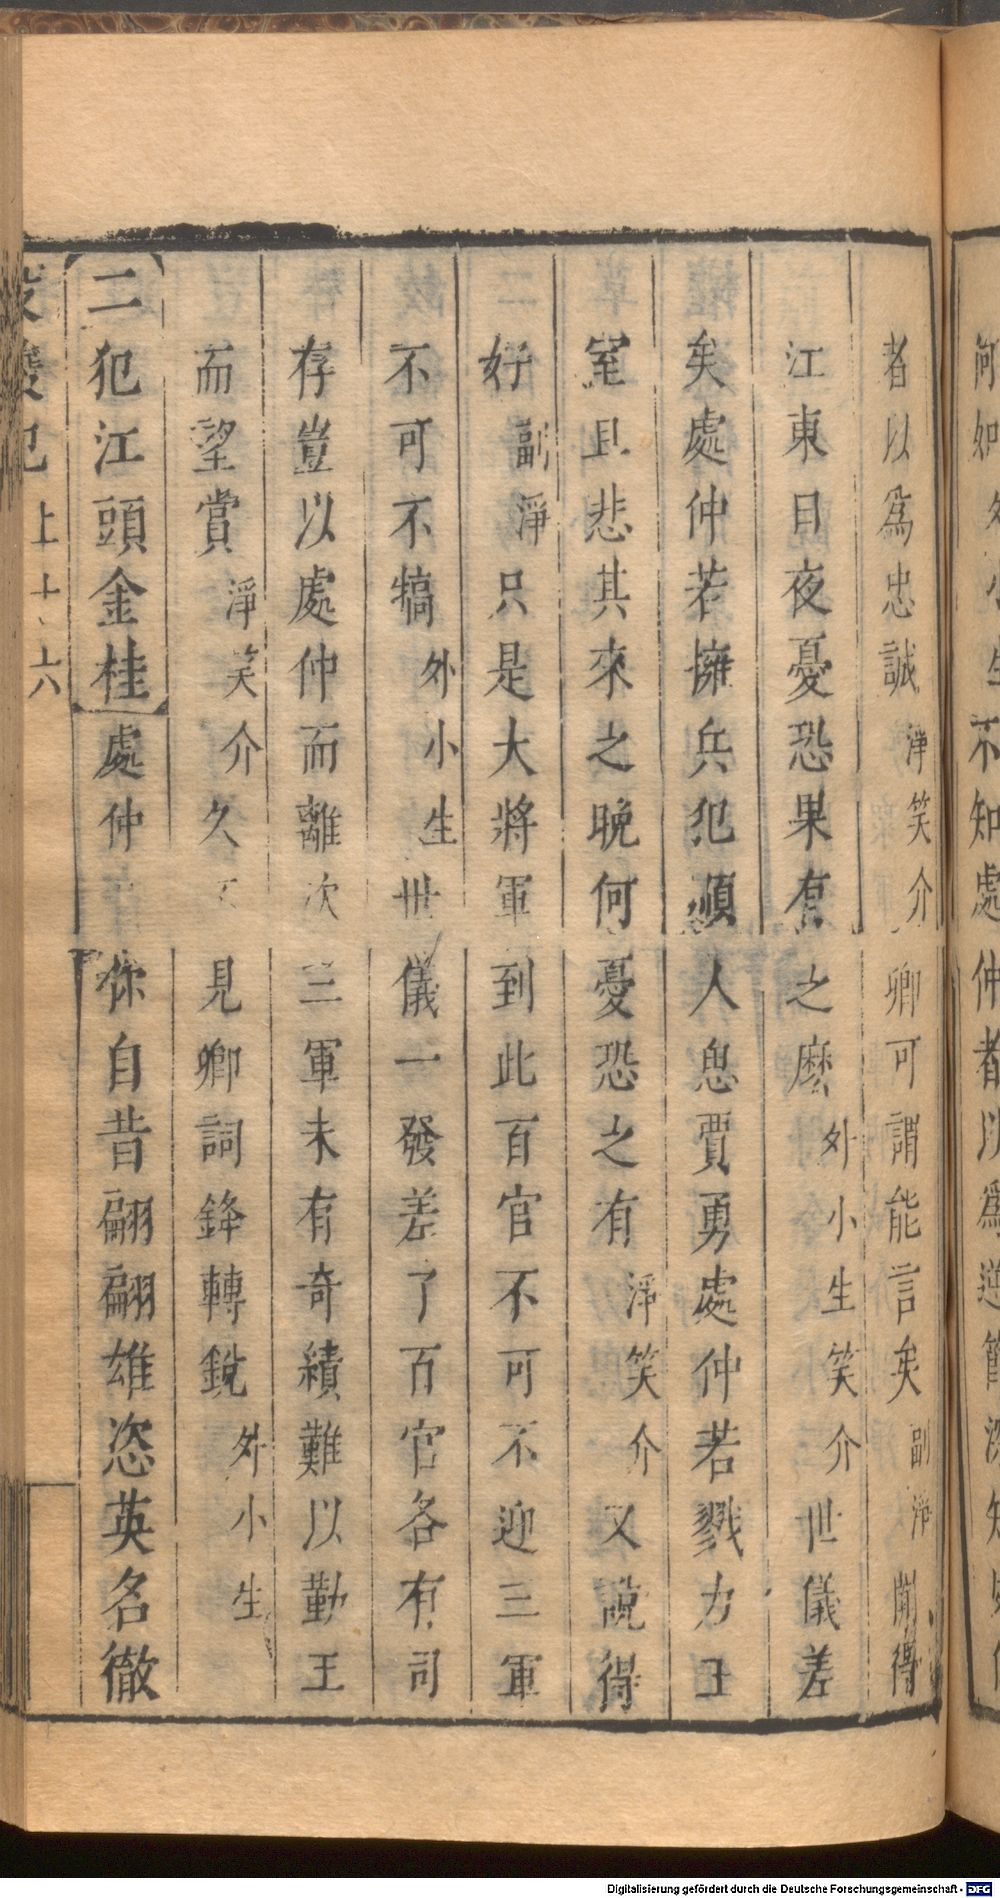 何如 外小生 不知處仲者以爲逆
者以爲忠誠 淨笑介 卿可謂能言矣 副淨 聞得
江東日夜憂恐果有之麽 外小生笑介 世儀差
矣處仲若擁兵犯順人息賈勇處仲若戮力王
室且悲其來之晚何憂恐之有 淨笑介 又說得
好 副淨 只是大將軍到此百官不可不迎三軍
不可不犒 外小生 世儀一發差了百官各有司
存豈以處仲而離次三軍未有奇績難以勤王
而望賞 淨笑介 久不見卿詞鋒轉銳 外小生
【二犯江頭金桂】處仲你自昔翩翩雄恣英名徹
上 十六
Digitalisierung gefördert durch die Deutsche Forschungsgemeinschaft - DFG